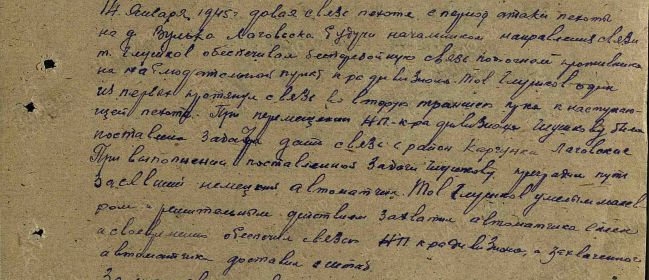 14 Января 1945г. довая связь пехоте в период атаки пехоты
на д. Вулька Лаговска. Будучи начальником направления связи
т. Глушков обеспечивал бесперебойную связь под огнем противника
на наблюдательный пункт к-ра дивизиона. Тов Глушков один
из первых протянул связь во вторую траншею пр-ка к наступаю-
щей пехоте. При перемещении НП к-ра дивизиона Глушкову была
поставлена задача дать связь в район Каргунка Лаговская
При выполнении поставленной задачи Глушкову преградил путь
засевший немецкий автоматчик. Тов Глушков умелым манев
ром и решительным действием захватил автоматчика в плен
и своевременно обеспечил связью НП к-ра дивизиона, а захваченного
автоматчика доставил в штаб.